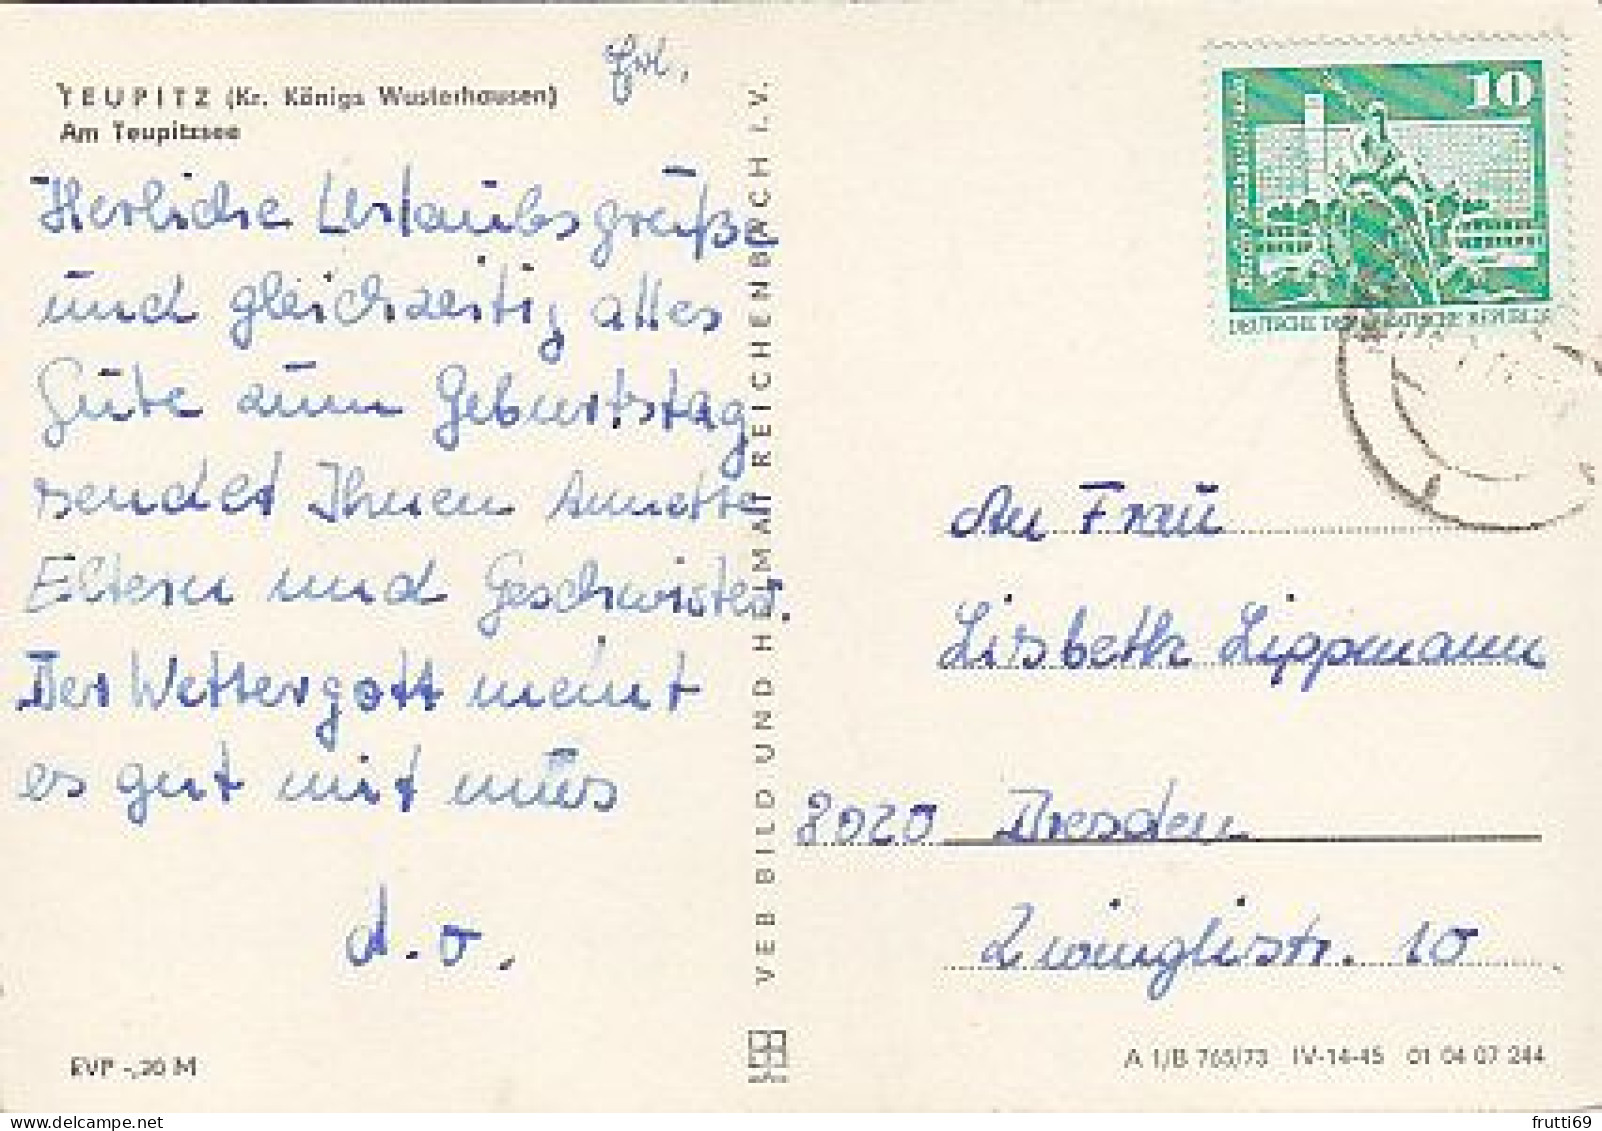 TEUPITZ (Kr. Königs Wusterhausen)
Am Teupitzsee
Herliche Urlaubsgrüße
und gleichzeitig alles
Gute zum Geburtstag
sendet Ihnen Annette
Eltern und Geschwister.
Der Wettergott meint
es gut mit uns
d. o.
EVP -,20 M
VEB BILD UND HEIMAT REICHENBACH I. V.
10
DEUTSCHE DEMOKRATISCHE REPUBLIK
An Frau
Lisbeth Lippmann
8020 Dresden
Zwinglistr. 10
A 1/B 765/73 IV-14-45 01 04 07 244
frutti69